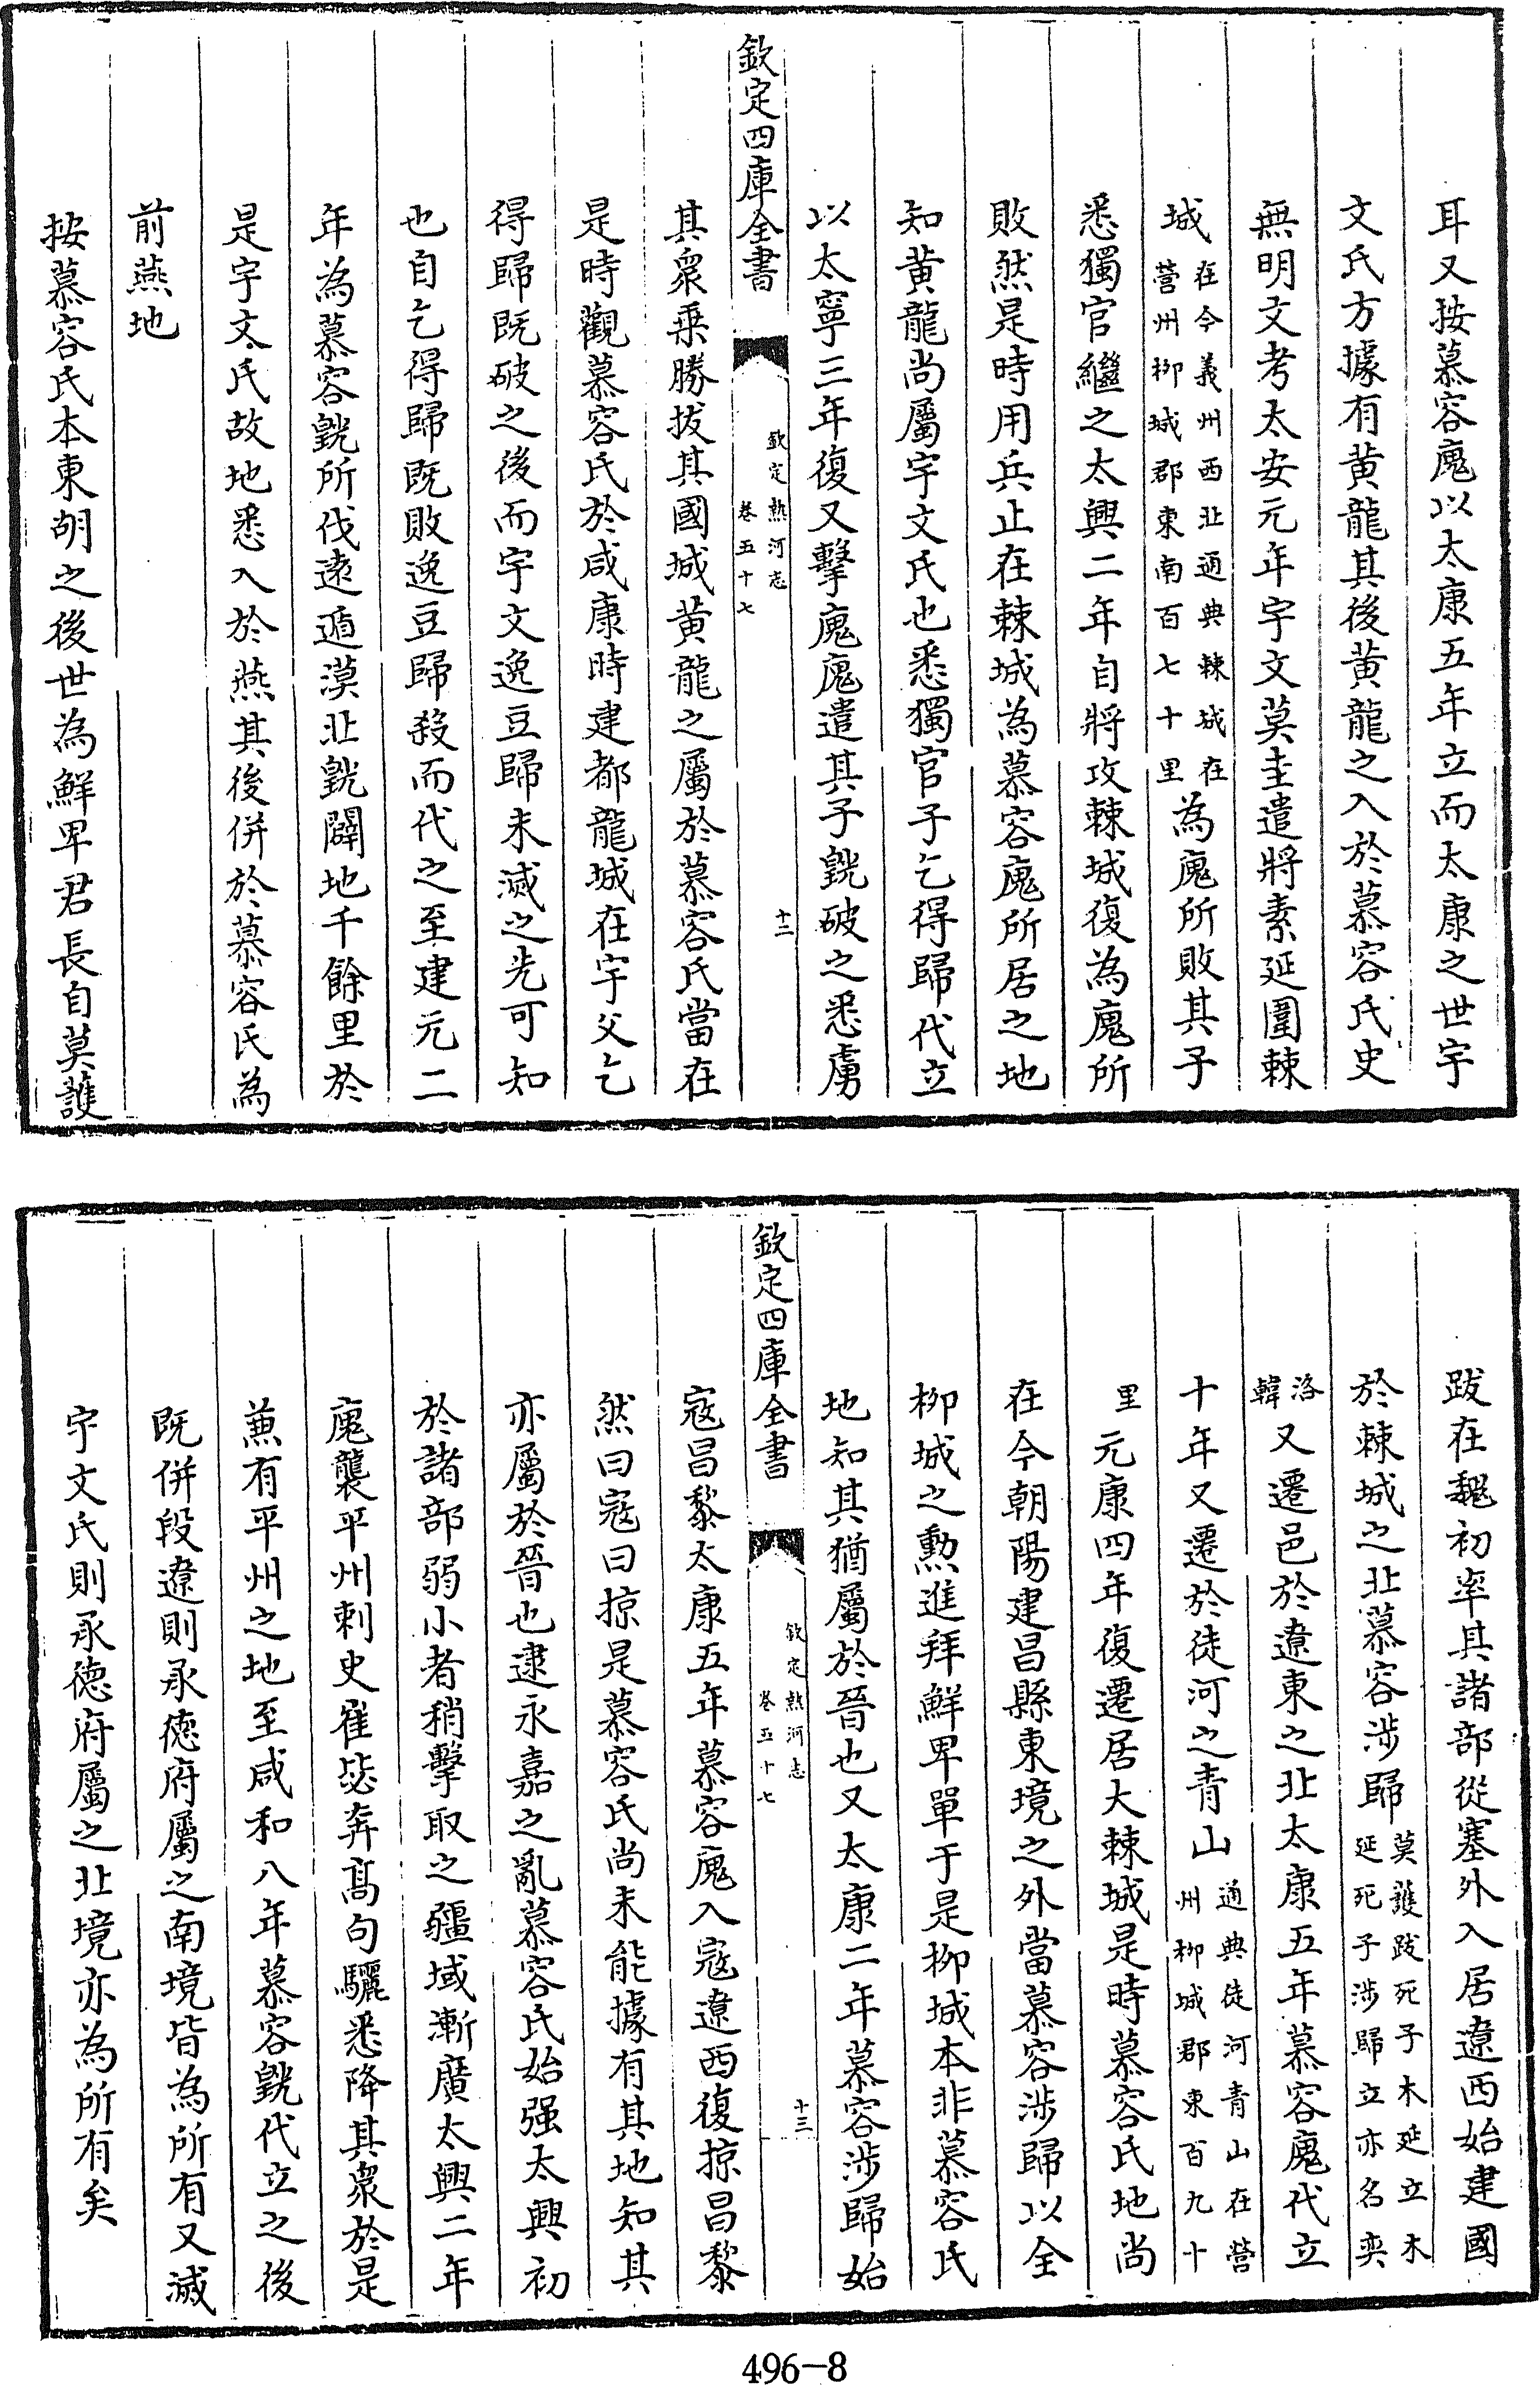 耳又按慕容廆以太康五年立而太康之世宇
文氏方據有黄龍其後黄龍之入於慕容氏史
無明文考太安元年宇文莫圭遣將素延圍棘
城在今義州西北通典棘城在營州柳城郡東南百七十里為廆所敗其子
悉獨官繼之太興二年自將攻棘城復為廆所
敗然是時用兵止在棘城為慕容廆所居之地
知黄龍尚屬宇文氏也悉獨官子乞得歸代立
以太寧三年復又擊廆廆遣其子皝破之悉虜
欽定四庫全書
欽定熱河志
卷五十七
十二
其衆乗勝拔其國城黄龍之屬於慕容氏當在
是時觀慕容氏於咸康時建都龍城在宇父乞
得歸既破之後而宇文逸豆歸未滅之先可知
也自乞得歸既敗逸豆歸殺而代之至建元二
年為慕容皝所伐遠遁漠北皝闢地千餘里於
是宇文氏故地悉入於燕其後併於慕容氏為
前燕地
按慕容氏本東胡之後世為鮮卑君長自莫䕶
跋在魏初率其諸部從塞外入居遼西始建國
於棘城之北慕容涉歸莫䕶跋死子木延立木延死子涉歸立亦名奕
洛韓又遷邑於遼東之北太康五年慕容廆代立
十年又遷於徒河之青山通典徒河青山在營州柳城郡東百九十
里元康四年復遷居大棘城是時慕容氏地尚
在今朝陽建昌縣東境之外當慕容涉歸以全
柳城之勲進拜鮮卑單于是柳城本非慕容氏
地知其猶屬於晉也又太康二年慕容涉歸始
欽定四庫全書
欽定熱河志
卷五十七
十三
寇昌黎太康五年慕容廆入寇遼西復掠昌黎
然曰寇曰掠是慕容氏尚未能據有其地知其
亦屬於晉也逮永嘉之亂慕容氏始强太興初
於諸部弱小者稍擊取之疆域漸廣太興二年
廆襲平州刺史崔毖奔髙句驪悉降其衆於是
兼有平州之地至咸和八年慕容皝代立之後
既併段遼則承徳府屬之南境皆為所有又滅
宇文氏則承徳府屬之北境亦為所有矣
496-8